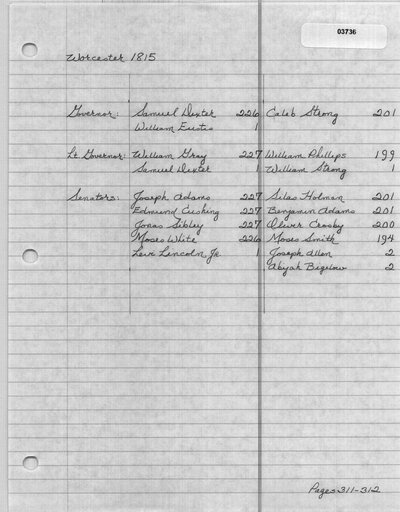 03736
Worcester 1815
Governor: Samuel Dexter 226 Caleb Strong 201
William Eustis 1
Lt Governor: William Gray 227 William Phillips 199
Samuel Dexter 1 William Strong 1
Senators: Joseph Adams 227 Silas Holman 201
Edmund Cushing 227 Benjamin Adams 201
Jonas Sibley 227 Oliver Crosby 200
Moses White 226 Moses Smith 194
Levi Lincoln Jr. 1 Joseph Allen 2
Abijah Bigelow 2
Pages 311-312